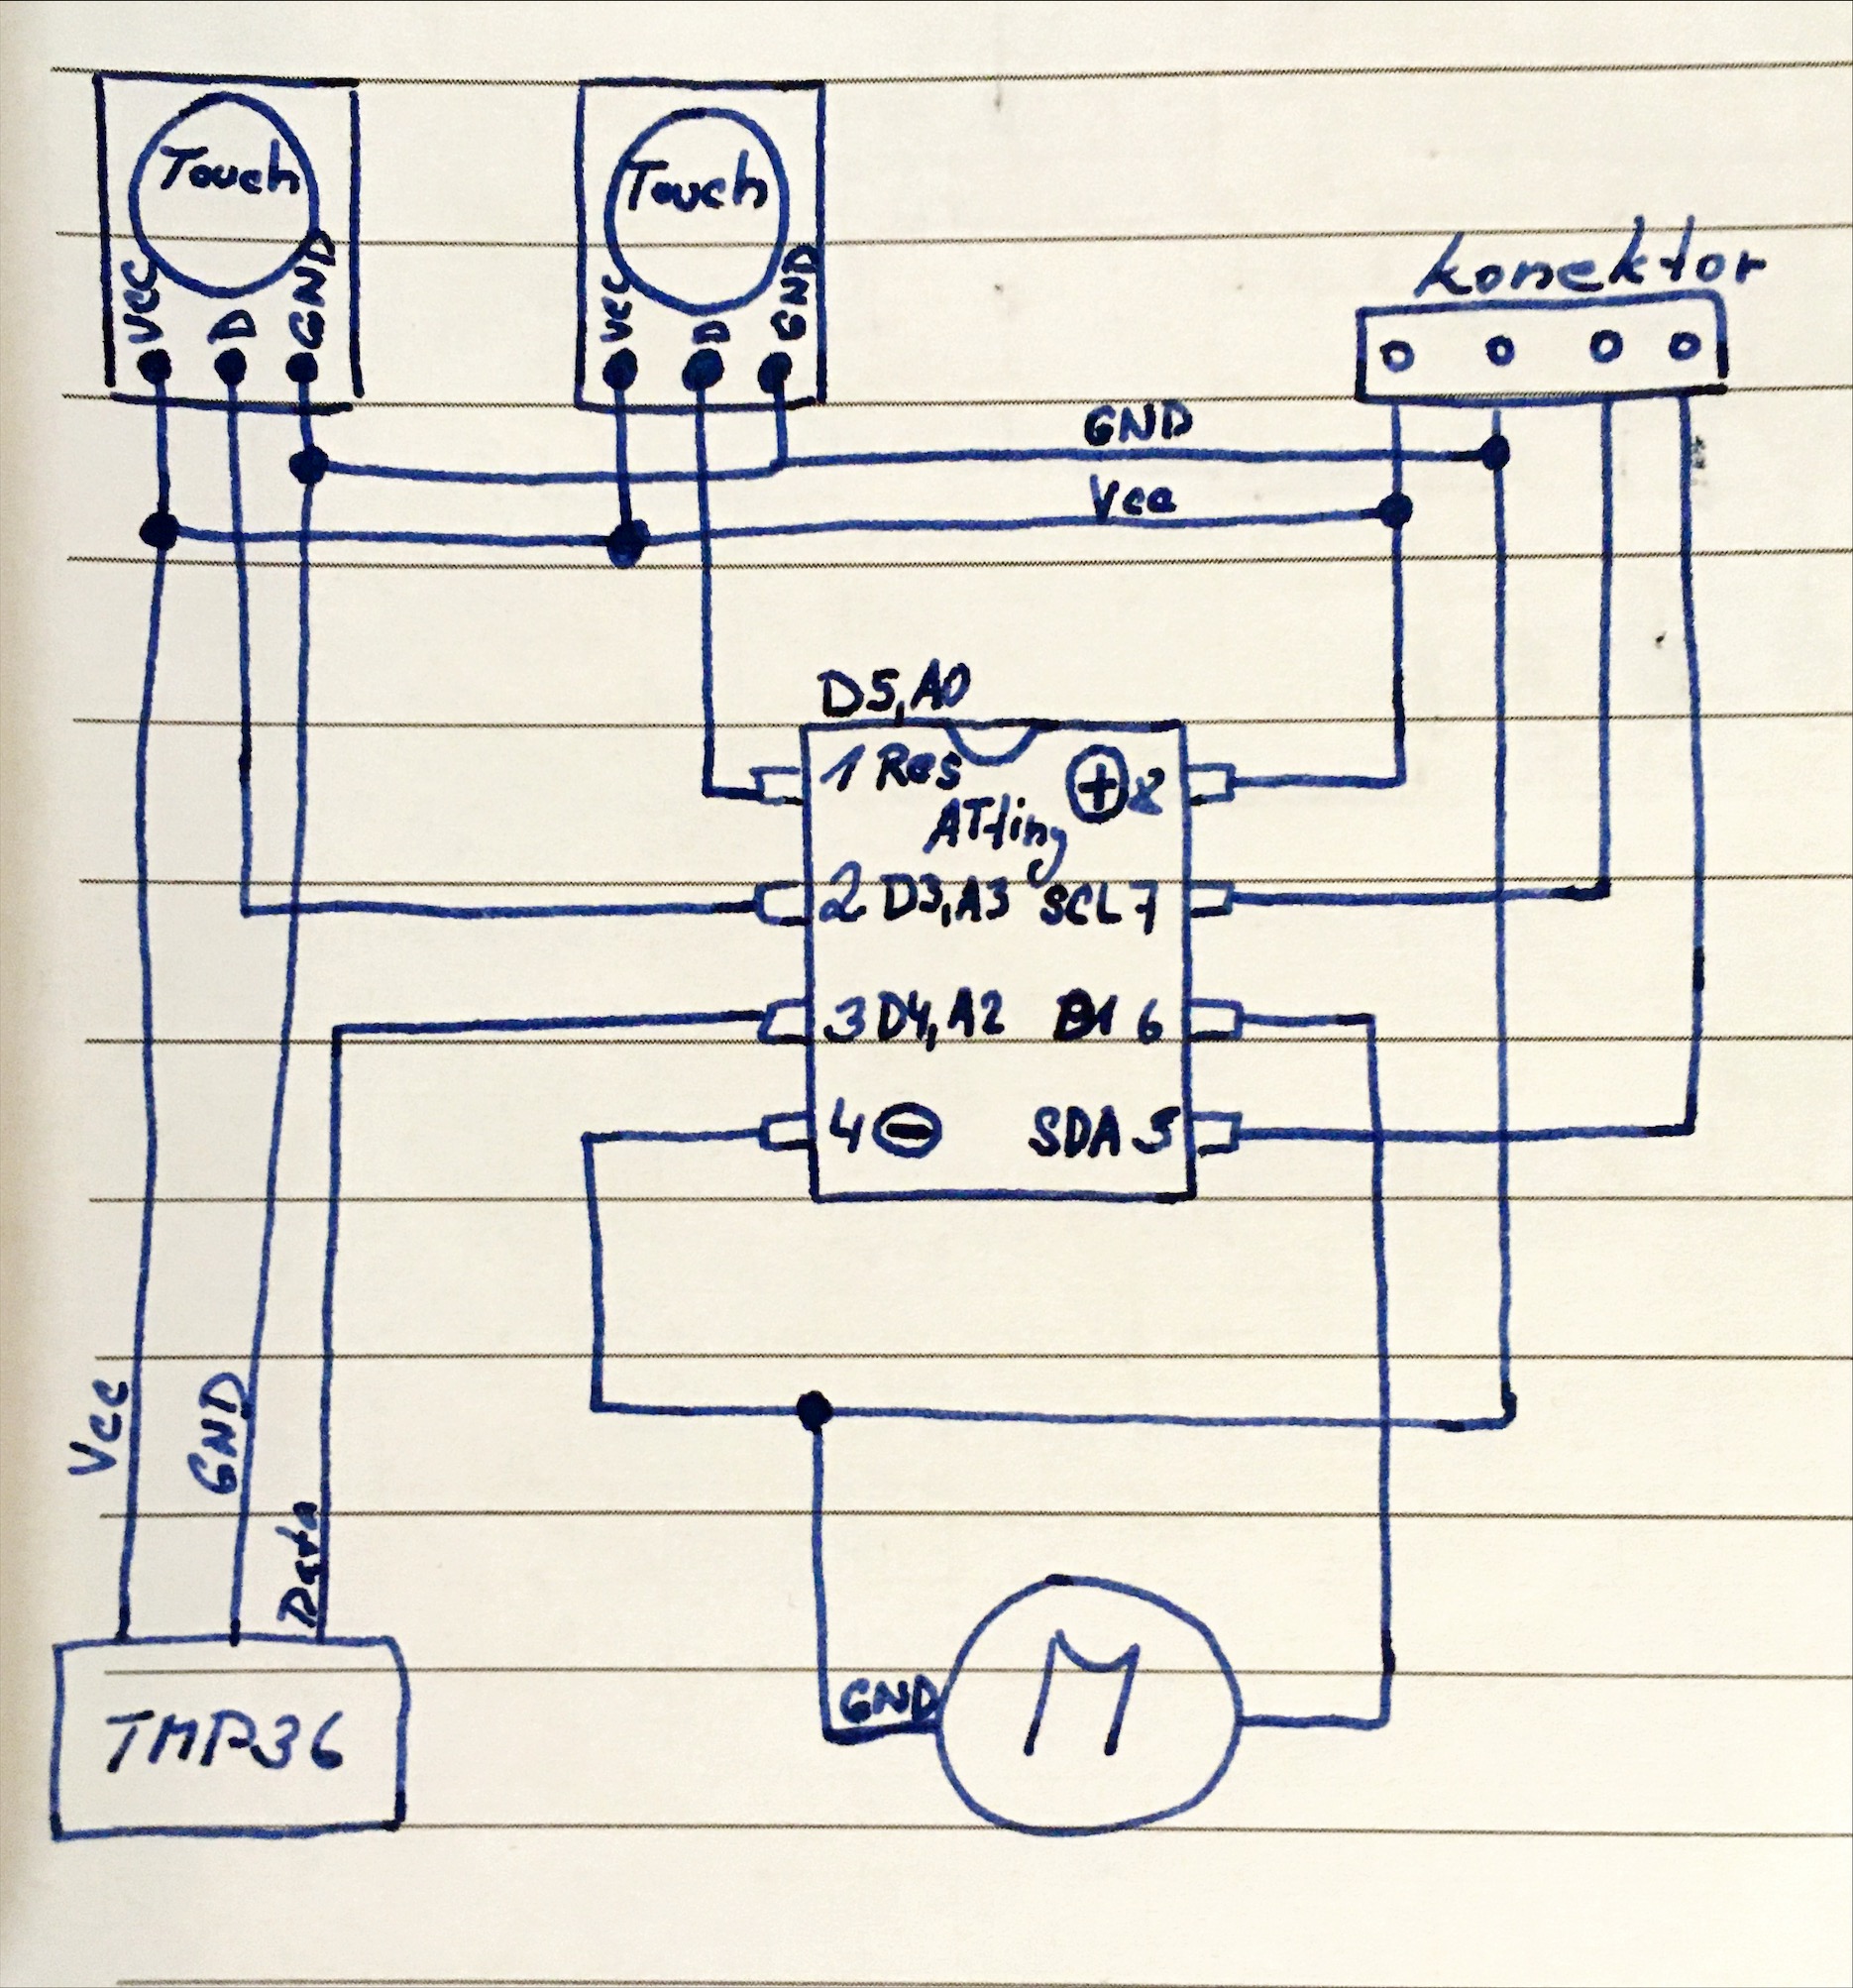 Touch
Vcc D GND
Touch
Vcc D GND
konektor
GND
Vcc
D5,A0
1 Res
+ 8
ATtiny
2 D3,A3
SCL 7
3 D4,A2
6
4 -
SDA 5
Vcc
GND
Data
TMP36
GND
M